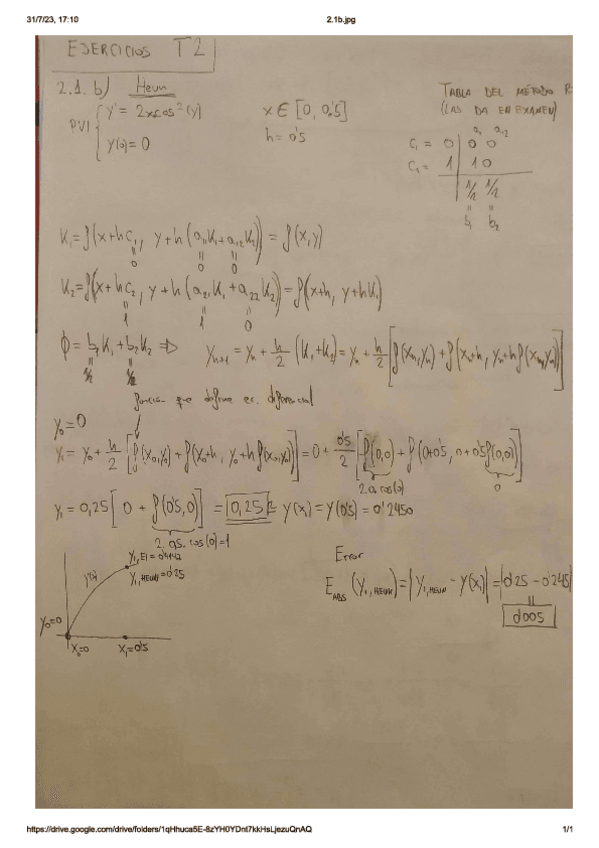 31/7/23, 17:10
2.1b.jpg
EJERCICIOS T2
2.1. b) Heun
PVI { y' = 2xcos²(y)
y(0) = 0
x ∈ [0, 0'5]
h = 0'5
TABLA DEL MÉTODO
(LAS DA EN EXAMEN)
a₁ a₁₂
C₁ = 0 | 0 0
C₂ = 1 | 1 0
1/2 1/2
b₁ b₂
K₁ = f(x+hc₁, y+h(a₁₁K₁+a₁₂K₂)) = f(x,y)
0 0 0
K₂ = f(x+hc₂, y+h(a₂₁K₁+a₂₂K₂)) = f(x+h, y+hK₁)
1 1 0
ϕ = b₁K₁+b₂K₂ ⇒ yₙ₊₁ = yₙ + h/2 (K₁+K₂) = yₙ + h/2 [f(xₙ,yₙ) + f(xₙ+h, yₙ+hf(xₙ,yₙ))]
1/2 1/2
función que define ec. diferencial
y₀ = 0
y₁ = y₀ + h/2 [f(x₀,y₀) + f(x₀+h, y₀+hf(x₀,y₀))] = 0 + 0'5/2 [f(0,0) + f(0+0'5, 0+0'5f(0,0))]
2.0.cos(0) 0
y₁ = 0,25 [0 + f(0'5,0)] = 0,25 ≈ y(x₁) = y(0'5) = 0'2450
2. 0,5. cos(0) = 1
y(x)
y₁,HEUN = 0'25
y₀=0
x₀=0 x₁=0'5
Error
E_ABS (y₁,HEUN) = |y₁,HEUN - y(x₁)| = |0'25 - 0'245|
0'005
https://drive.google.com/drive/folders/1qHhuca5E-8zYH0YDnt7kkHsLjezuQnAQ
1/1